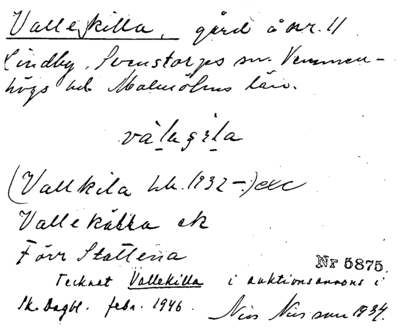 Vallekilla, gård å nr. 11
Lindby, Svenstorps sn. Vemmen-
högs hd. Malmöhus län.
(Vallkila hb. 1932–) etc
Vallekälla ek
Förr Stattena
Nr 5875.
Tecknat Vallekilla i auktionsannons i
Sk. Dagbl. febr. 1946. Nils Nilsson 1934.